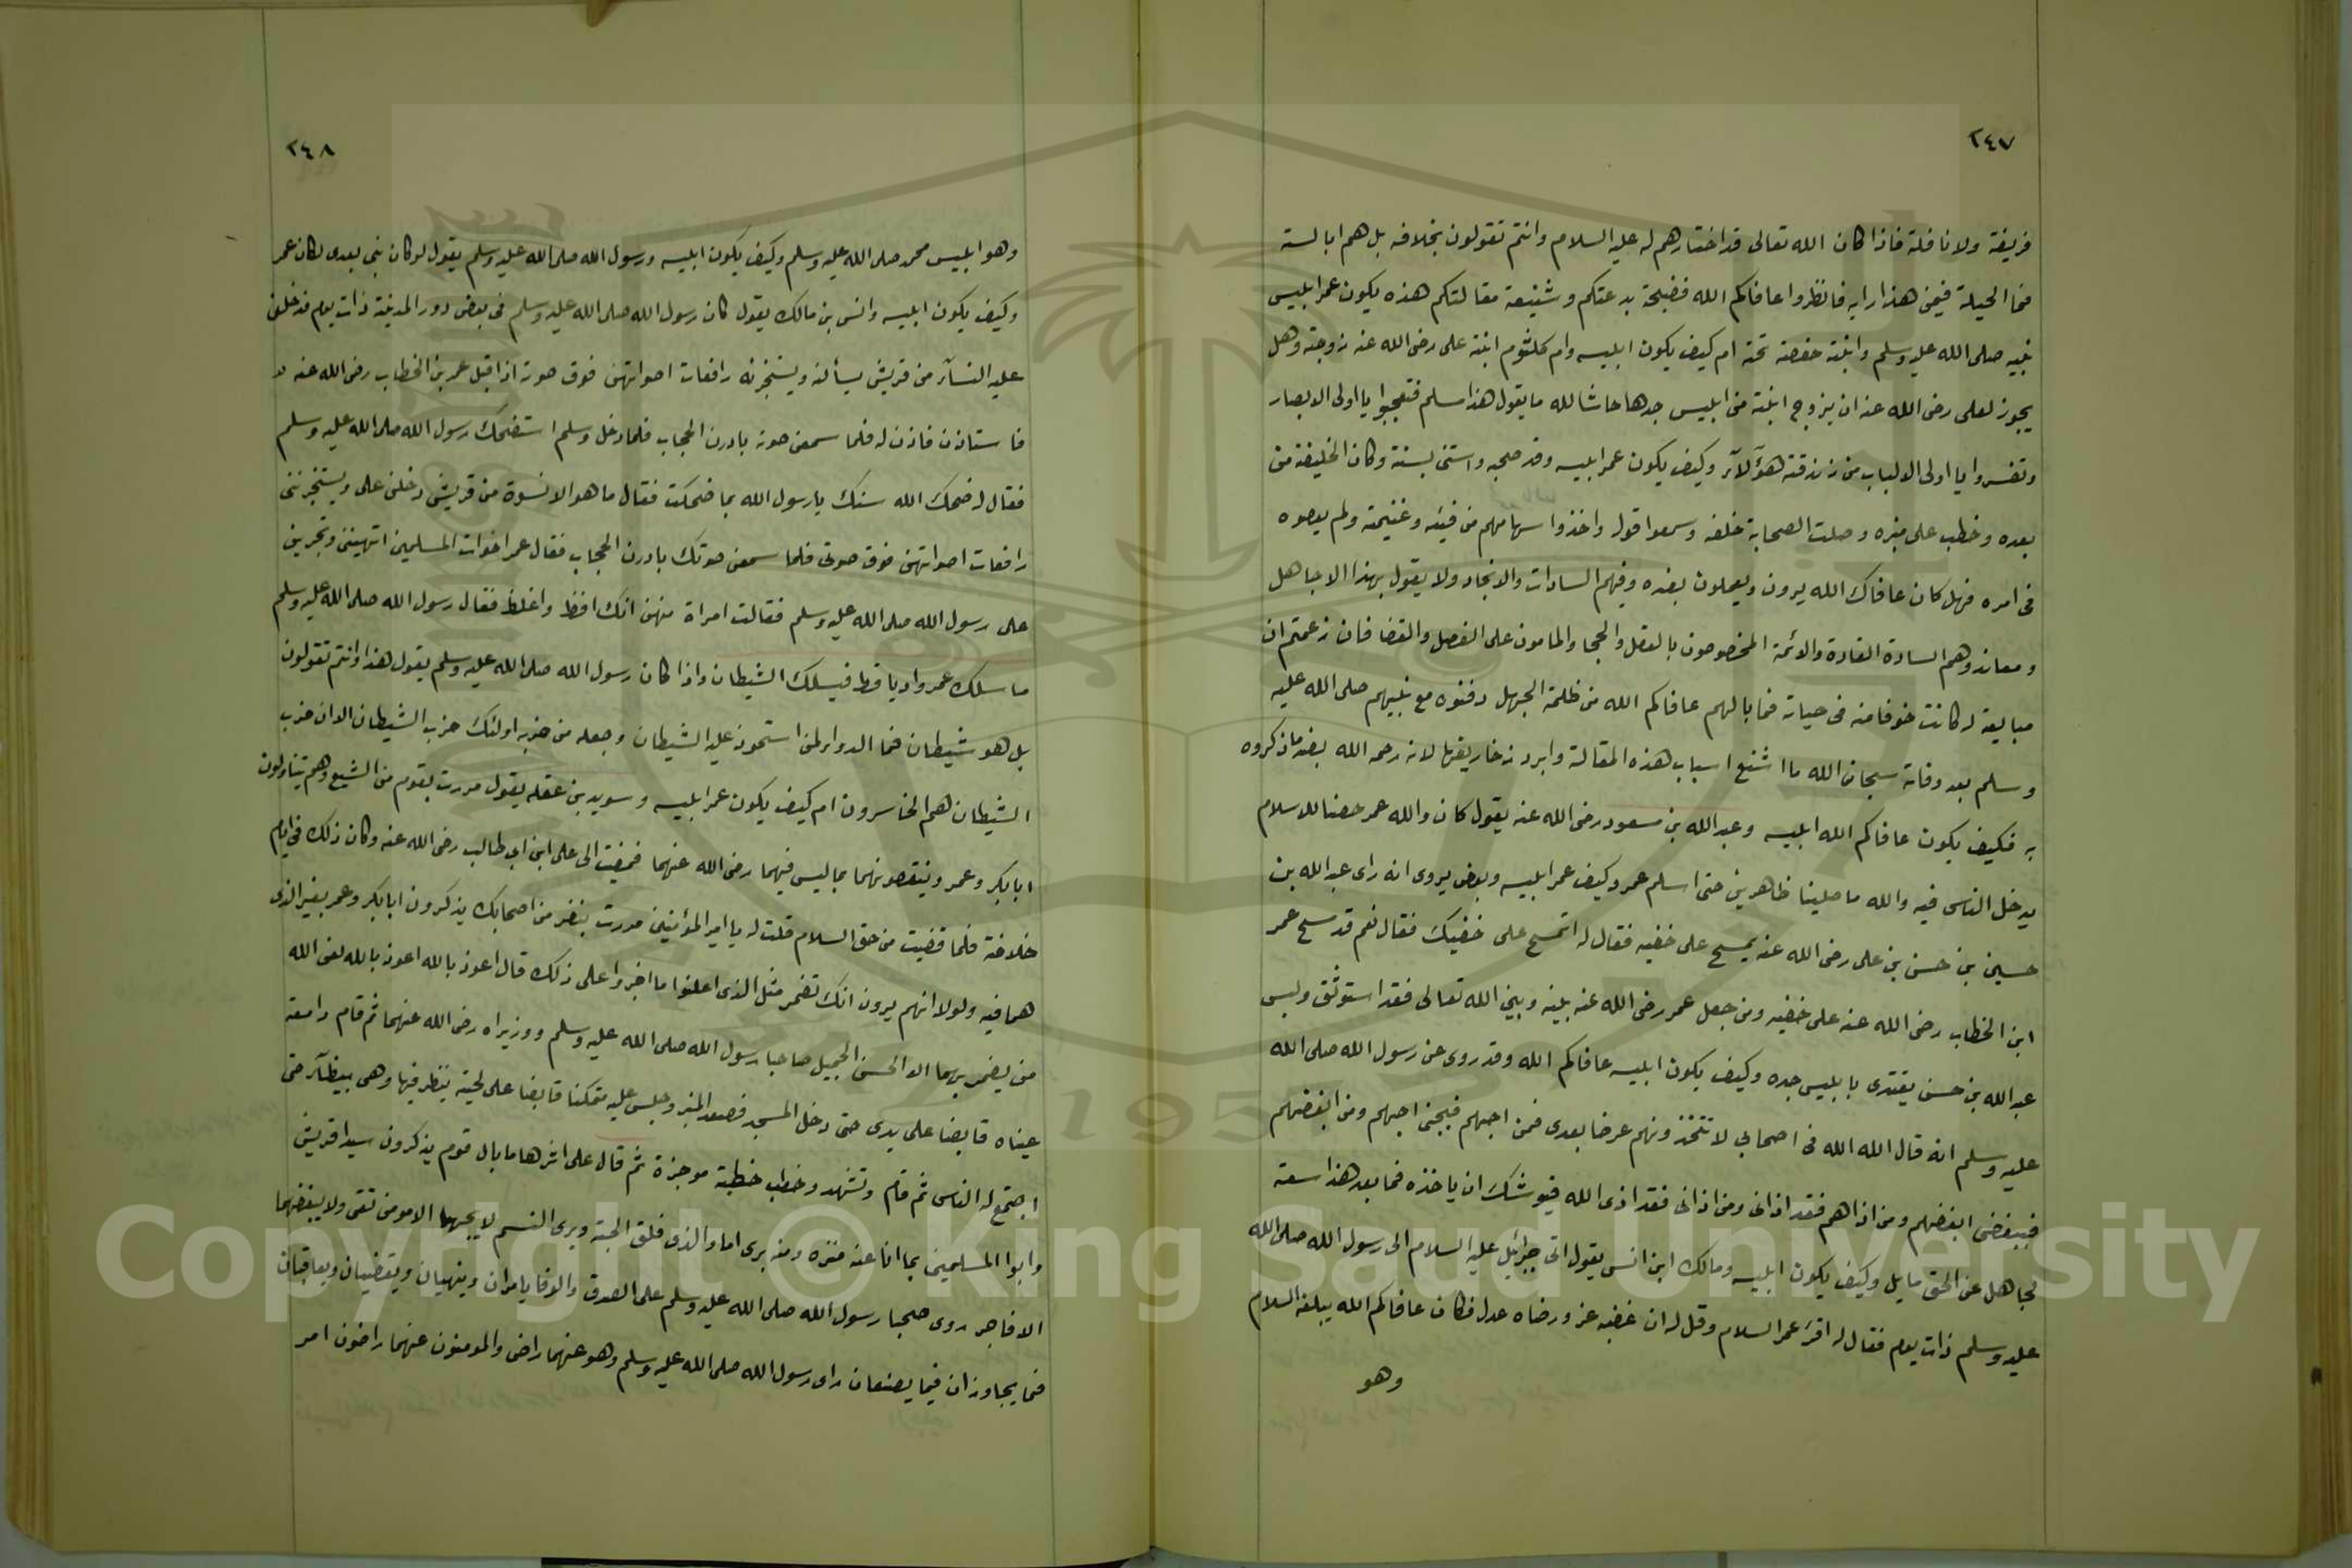 ٢٤٧
فريضة ولا نافلة فاذا كان الله تعالى قد اختارهم له عليه السلام وانتم تقولون بخلافه بل هم ابالسة
فما الحيلة فيمن هذا رايه فانظروا عافاكم الله فضيحة بدعتكم وشنيعة مقالتكم هذه يكون عمر ابليس
نبيه صلى الله عليه وسلم وابنته حفصة تحته ام كيف يكون ابليسه وام كلثوم ابنة على رضى الله عنه زوجته وهل
يجوز لعلى رضى الله عنه ان يزوج ابنته من ابليس جدها حاشا لله ما يقول هذا مسلم فتعجبوا يا اولى الابصار
وتفسروا يا اولى الالباب من زندقة هؤلآء وكيف يكون عمر ابليسه وقد صحبه واستن بسنته وكان الخليفة من
بعده وخطب على منبره وصلت الصحابة خلفه وسمعوا قوله واخذوا سهامهم من فيئه وغنيمته ولم يعصوه
فى امره فهل كان عافاك الله يرون ويعملون بضده وفيهم السادات والانجاد ولا يقول بهذا الا جاهل
ومعاند وهم السادة القادة والائمة المخصوصون بالعقل والحجا والمامون على الفصل والقضا فان زعمتم ان
مبايعة له كانت خوفا منه فى حياته فما بالهم عافاكم الله من ظلمة الجهل دفنوه مع نبيهم صلى الله عليه
وسلم بعد وفاته سبحان الله ما اشنع اسباب هذه المقالة وابرد زخاريفها لانه رحمه الله بضد ما ذكروه
به فكيف يكون عافاكم الله ابليسه وعبد الله بن مسعود رضى الله عنه يقول كان والله عمر حصنا للاسلام
يدخل الناس فيه والله ما صلينا ظاهرين حتى اسلم عمر وكيف عمر ابليسه وبعض يروى انه راى عبد الله بن
حسين بن حسن بن على رضى الله عنه يمسح على خفيه فقال له اتمسح على خفيك فقال نعم قد مسح عمر
ابن الخطاب رضى الله عنه على خفيه ومن جعل عمر رضى الله عنه بينه وبين الله تعالى فقد استوثق وليس
عبد الله بن حسن يقتدى بابليس جده وكيف يكون ابليسه عافاكم الله وقد روى عن رسول الله صلى الله
عليه وسلم انه قال الله الله فى اصحابى لا تتخذونهم عرضا بعدى فمن احبهم فبحبى احبهم ومن ابغضهم
فببغضى ابغضهم ومن اذاهم فقد اذانى ومن اذانى فقد اذى الله فيوشك ان ياخذه فما بعد هذا سعة
لجاهل عن الحق مايل وكيف يكون ابليسه ومالك ابن انس يقول اتى جبرائيل عليه السلام الى رسول الله صلى الله
عليه وسلم ذات يوم فقال له اقرء عمر السلام وقل له ان غضبه عز ورضاه عدل فكان عافاكم الله يبلغه السلام
وهو
٢٤٨
وهو ابليس محمد صلى الله عليه وسلم وكيف يكون ابليسه ورسول الله صلى الله عليه وسلم يقول لو كان نبى بعدى لكان عمر
وكيف يكون ابليسه وانس بن مالك يقول كان رسول الله صلى الله عليه وسلم فى بعض دور المدينة ذات يوم فدخلن
عليه النسآء من قريش يسألنه ويستخبرنه رافعات اصواتهن فوق صوته اذ اقبل عمر بن الخطاب رضى الله عنه
فاستاذن فاذن له فلما سمعن صوته بادرن الحجاب فلما دخل وسلم استضحك رسول الله صلى الله عليه وسلم
فقال له ضحك الله سنك يا رسول الله بما ضحكت فقال ما هو الا نسوة من قريش دخلن على ويستخبرننى
رافعات اصواتهن فوق صوتى فلما سمعن صوتك بادرن الحجاب فقال عمر اخوات المسلمين اتهبننى وتجرين
على رسول الله صلى الله عليه وسلم فقالت امراة منهن انك افظ واغلظ فقال رسول الله صلى الله عليه وسلم
ما سلك عمر واديا قط فيسلك الشيطان واذا كان رسول الله صلى الله عليه وسلم يقول هذا وانتم تقولون
بل هو شيطان فما الدوا لمن استحوذ عليه الشيطان وجعله من حزبه اولئك حزب الشيطان الا ان حزب
الشيطان هم الخاسرون ام كيف يكون عمر ابليسه وسويد بن غفله يقول مررت بقوم من الشيع وهم يتناولون
ابا بكر وعمر وينتقصونهما بما ليس فيهما رضى الله عنهما فمضيت الى على ابن ابى طالب رضى الله عنه وكان ذلك فى ايام
خلافته فلما قضيت من حق السلام قلت له يا امير المؤمنين مررت بنفر من اصحابك يذكرون ابا بكر وعمر بغير الذى
هما فيه ولولا انهم يرون انك تضمر مثل الذى اعلنوا ما اجروا على ذلك قال اعوذ بالله اعوذ بالله لعن الله
من يضمر بهما الا الحسن الجميل صاحبا رسول الله صلى الله عليه وسلم ووزيراه رضى الله عنهما ثم قام دامعة
عيناه قابضا على يدى حتى دخل المسجد فصعد المنبر وجلس عليه متمكنا قابضا على لحيته ينظر فيها وهى بيضآء حتى
اجتمع له الناس ثم قام وتشهد وخطب خطبة موجزة ثم قال على اثرها ما بال قوم يذكرون سيدا قريش
وابوا المسلمين بما انا عنه منزه ومنه برى اما والذى فلق الحبة وبرى النسم لا يحبهما الا مومن تقى ولا يبغضهما
الا فاجر روى صحبا رسول الله صلى الله عليه وسلم على الصدق والوفا يامران وينهيان ويقضيان ويعاقبان
فما يجاوزان فيما يصنعان راى رسول الله صلى الله عليه وسلم وهو عنهما راض والمومنون عنهما راضون امر
Copyright © King Saud University
1957